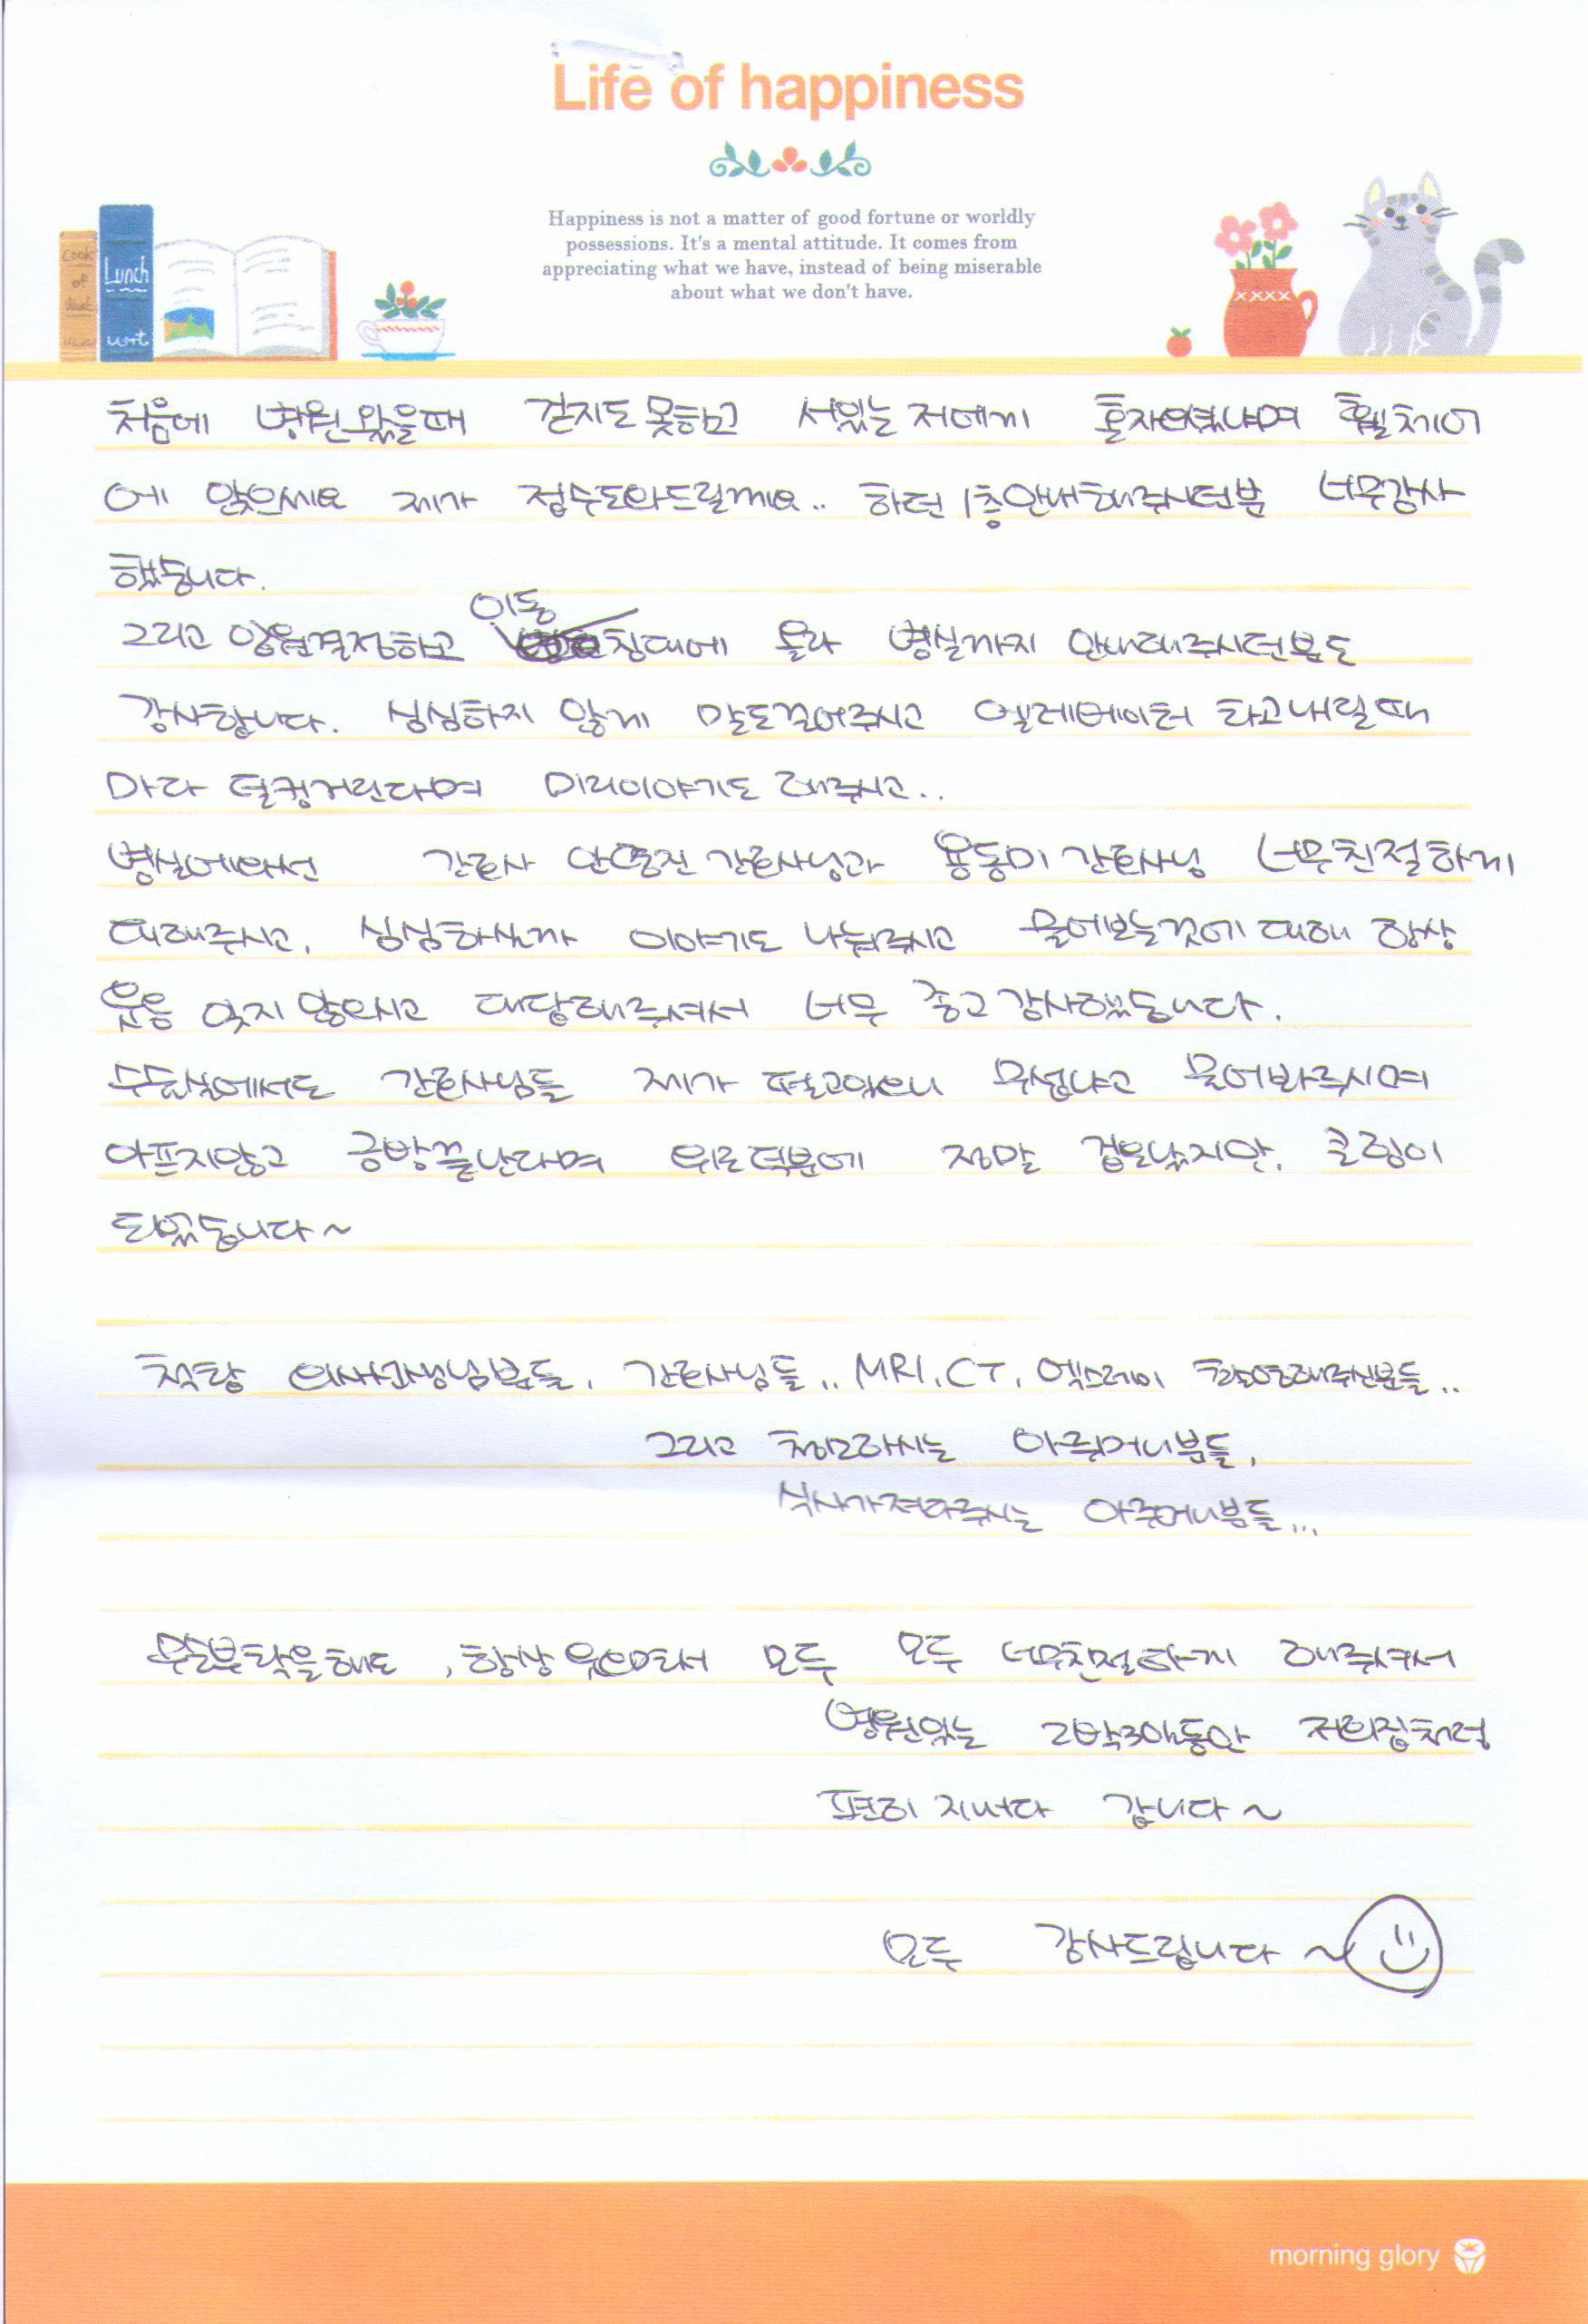 Life of happiness
Happiness is not a matter of good fortune or worldly
possessions. It's a mental attitude. It comes from
appreciating what we have, instead of being miserable
about what we don't have.
Cook
of
Lunch
처음에 병원왔을때 걷지도 못하고 서있는 저에게 혼자오셨냐며 휠체어
에 앉으세요 제가 접수도와드릴께요.. 하던 1층안내해주시던분 너무감사
했습니다.
이동
그리고 입원결정하고 침대에 올라 병실까지 안내해주시던분도
감사합니다. 심심하지 않게 말도걸어주시고 엘레베이터 타고내릴때
마다 덜컹거린다며 미리이야기도 해주시고..
병실에와선 간호사 간호사님과 용동미 간호사님 너무친절하게
대해주시고, 심심하실까 이야기도 나눠주시고 물어보는것에 대해 항상
웃음 잊지 않으시고 대답해주셔서 너무 좋고 감사했습니다.
수술실에서도 간호사님들 제가 떨고있으니 무섭냐고 물어봐주시며
아프지않고 금방끝난다며 위로덕분에 정말 겁은났지만, 큰힘이
되었습니다~
척탑 의사선생님분들, 간호사님들.. MRI, CT, 엑스레이 촬영해주신분들..
그리고 청소하시는 아주머니분들,
식사가져다주시는 아주머니분들...
무슨부탁을해도, 항상 웃으면서 모두 모두 너무친절하게 해주셔서
병원있는 2박3일동안 저희집처럼
편히 지내다 갑니다~
모두 감사드립니다~
morning glory